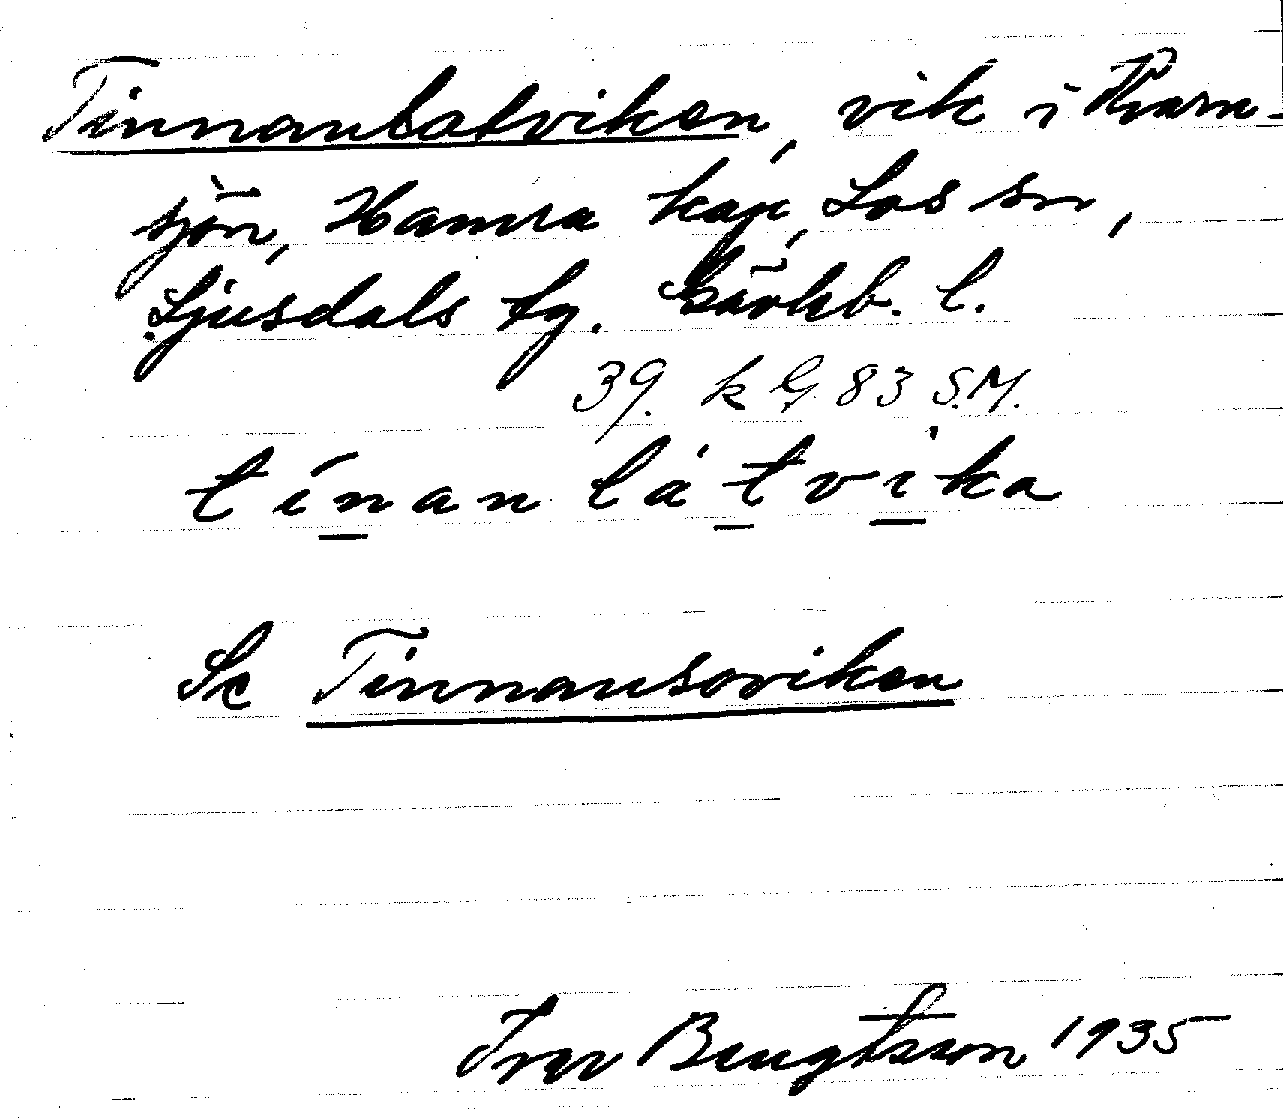 Tinnanlatviken, vik i Kvarn-
sjön, Hamra kap, Los sn,
Ljusdals tg. Gävleb. l.
39. k G. 83 S.M.
tínan låtvika
Se Tinnansoviken
Ivar Bengtsson 1935